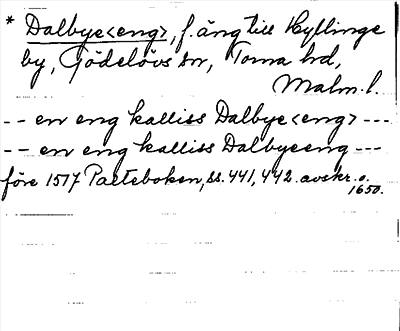 * Dalbye<eng>, f. äng till Hyllinge
by, Gödelövs sn, Torna hd,
Malm. l.
-- en eng kalliss Dalbye<eng> ---
-- en eng kalliss Dalbyeeng ---
före 1517 Palteboken, ss. 441, 442. avskr. o.
1650.